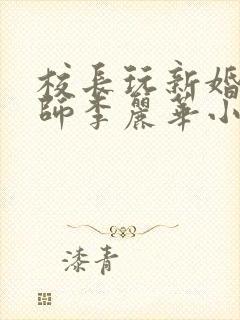 校長玩新婚
師李麗華小
漆青